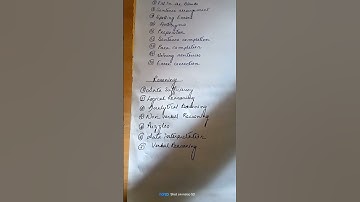 Fill in the Blanks
Sentence arrangement
Spotting Errors
Antonyms
Preposition
Sentence completion
Para completion
sentences
Error correction
Reasoning
Data Sufficiency
Logical Reasoning
Analytical Reasoning
Non Verbal Reasoning
Puzzles
Data interpretation
Verbal Reasoning